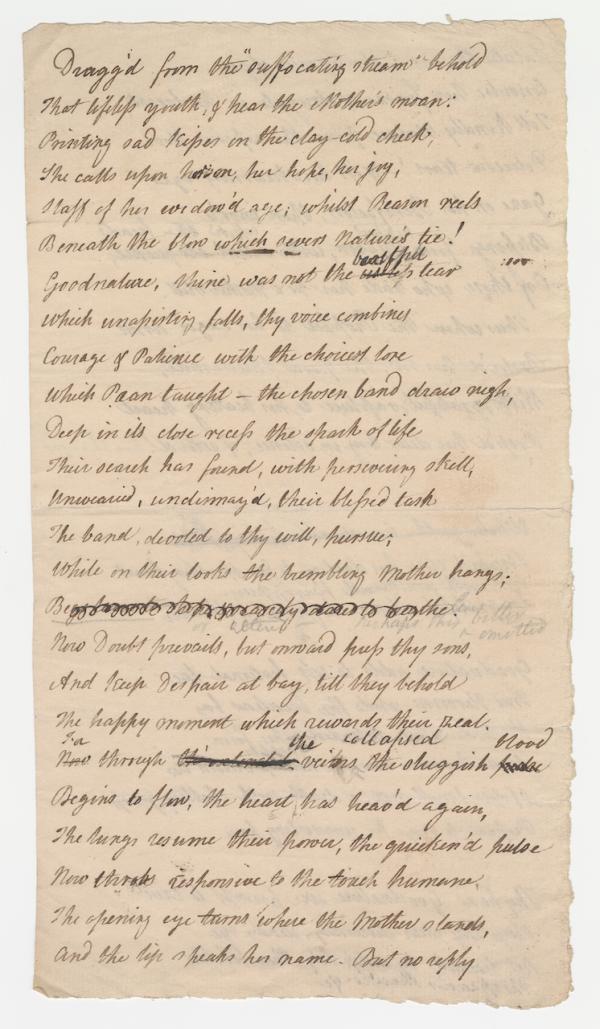 Dragg'd from the "suffocating stream" behold
That lifeless youth, & hear the Mother's moan:
Printing sad kisses on the clay-cold cheek,
She calls upon her son, her hope, her joy,
Staff of her widow'd age; whilst Reason reels
Beneath the blow which severs Nature's tie!
bashful
Goodnature, thine was not the useless tear
Which unassisting falls, thy voice combines
Courage & Patience with the choicest lore
Which Pæan taught — the chosen band draw nigh,
Deep in its close recess the spark of life
Their search has found, with persevering skill,
Unwearied, undismay'd, their blessed task
The band, devoted to thy will, pursue;
While on their looks the trembling Mother hangs;
perhaps this line better omitted
Now Doubt prevails, but onward press thy sons,
And keep Despair at bay, till they behold
The happy moment which rewards their zeal.
For the collapsed blood
Now through veins the sluggish pulse
Begins to flow, the heart has heav'd again,
The lungs resume their power, the quicken'd pulse
Now throbs responsive to the touch humane.
The opening eye turns where the Mother stands,
And the lip speaks her name. But no reply